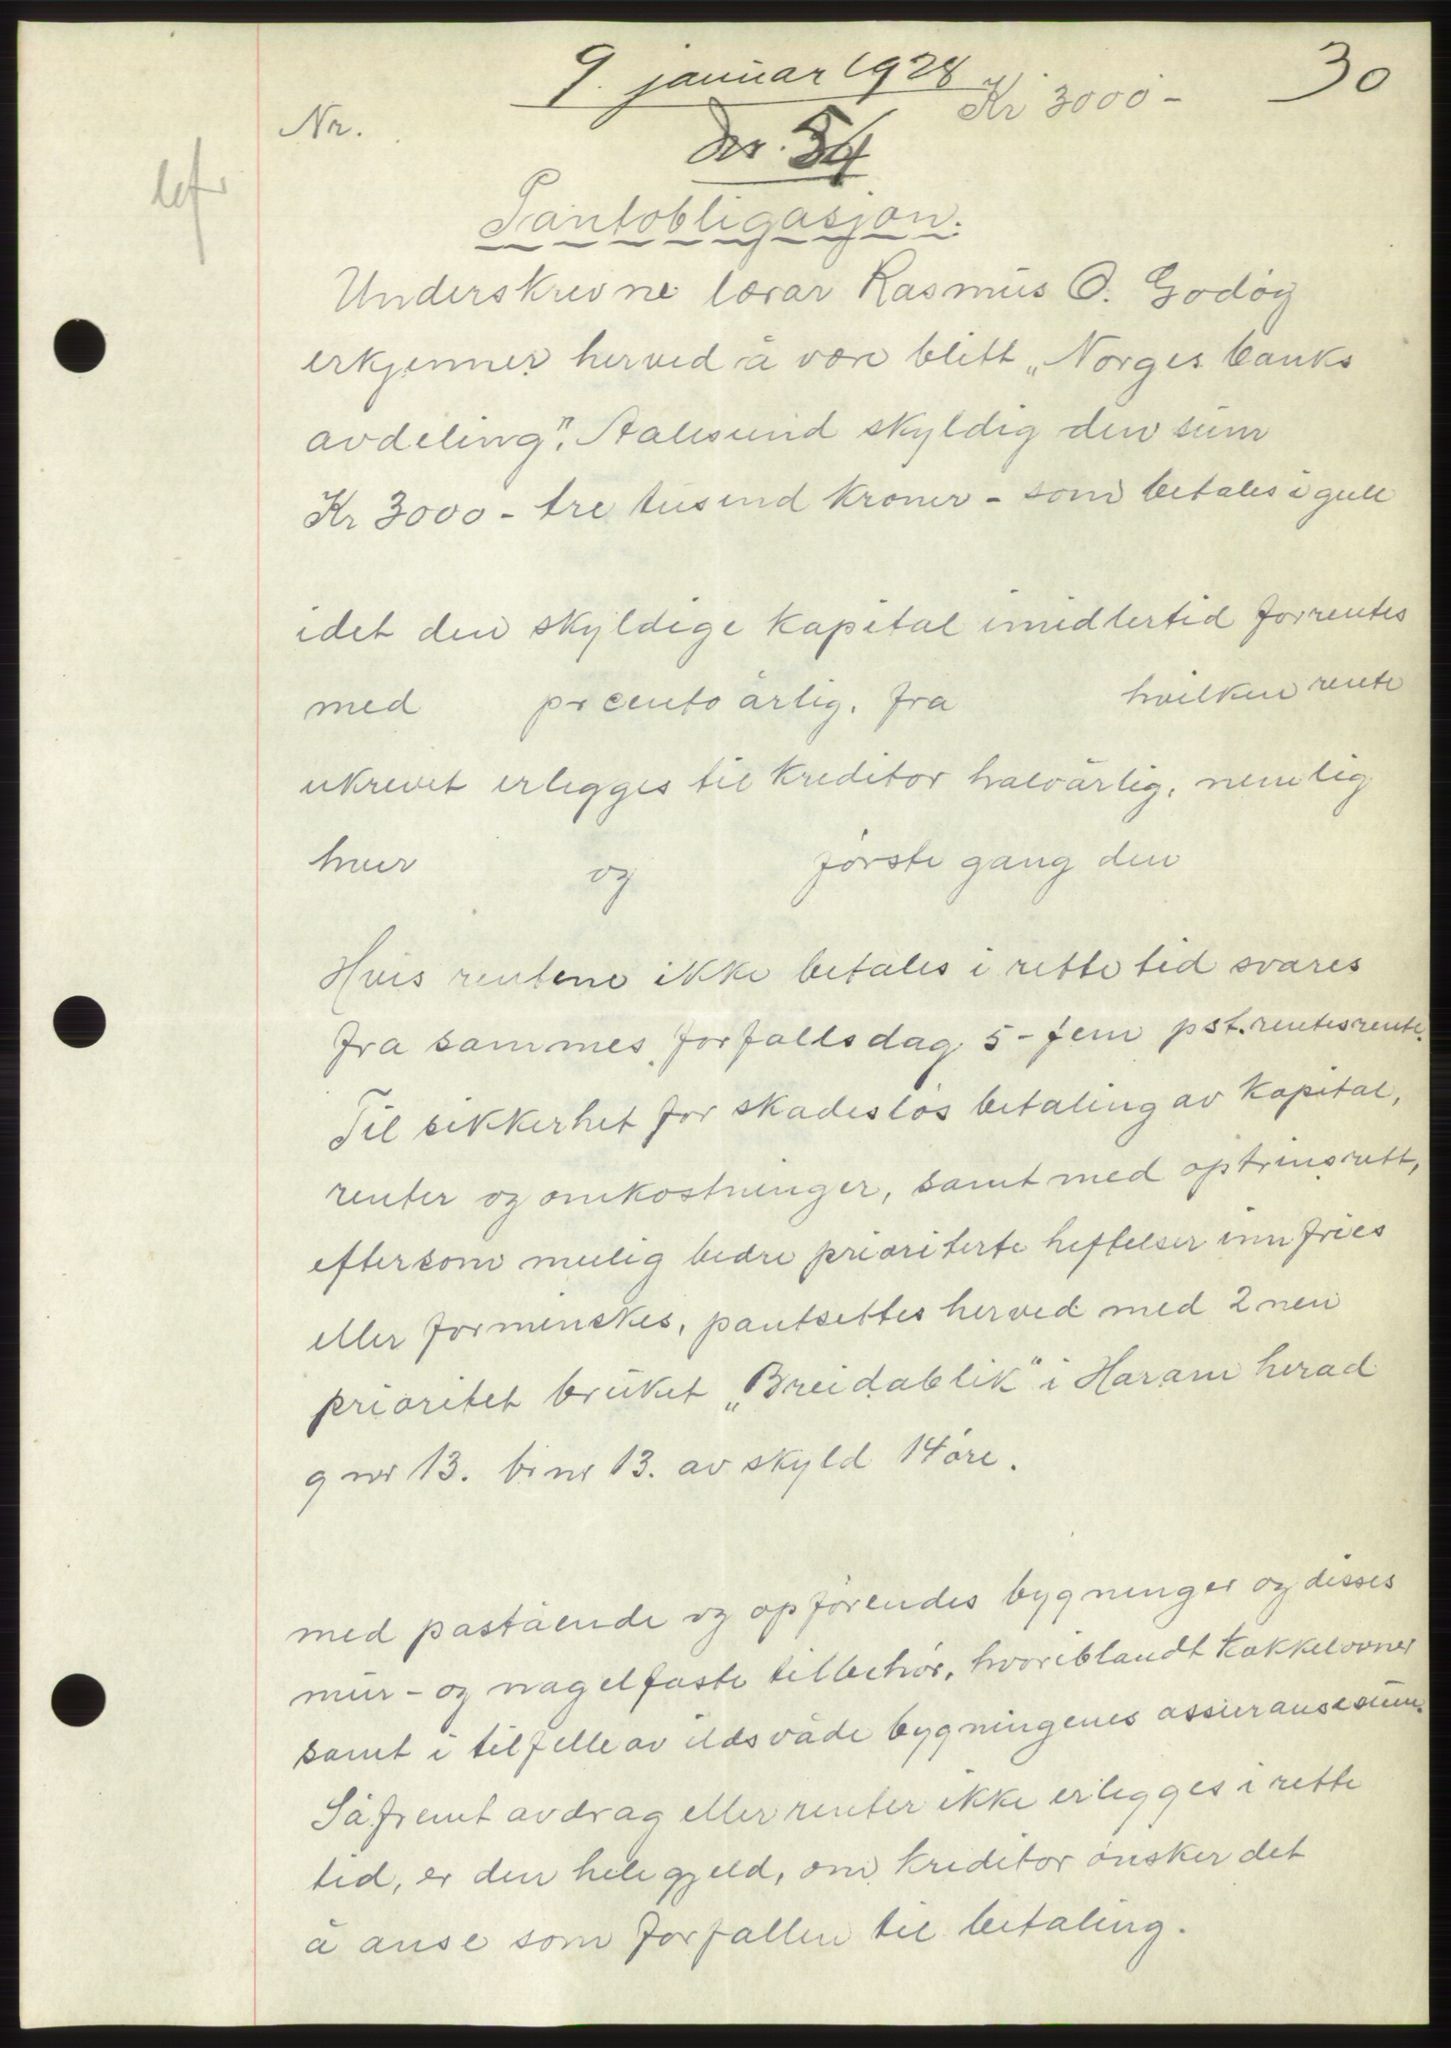 9. januar 1928
30
Nr.
Kr 3000 -
Dnr. 54
Pantobligasjon.
Underskrevne lærar Rasmus O. Godøy
erkjenner herved å være blitt „Norges banks
avdeling", Aalesund skyldig den sum
Kr 3000 - tre tusend kroner - som betales i gull
idet den skyldige kapital imidlertid forrentes
med procento årlig, fra hvilken rente
ukrevet erlegges til kreditor halvårlig, nemlig
hver og første gang den
Hvis rentene ikke betales i rette tid svares
fra sammes forfallsdag 5 - fem pst. rentesrente.
Til sikkerhet for skadesløs betaling av kapital,
renter og omkostninger, samt med optrinsrett,
eftersom mulig bedre prioriterte heftelser innfries
eller forminskes, pantsettes herved med 2 nen
prioritet bruket „Breidablik" i Haram herad
g nr 13. br nr 13. av skyld 14 øre.
med påstående og opførendes bygninger og disses
mur- og nagelfaste tilbehør, hvoriblandt kakkelovner
samt i tilfelle av ildsvåde bygningenes assuransesum.
Såfremt avdrag eller renter ikke erlegges i rette
tid, er den hele gjeld, om kreditor ønsker det
å anse som forfallen til betaling.